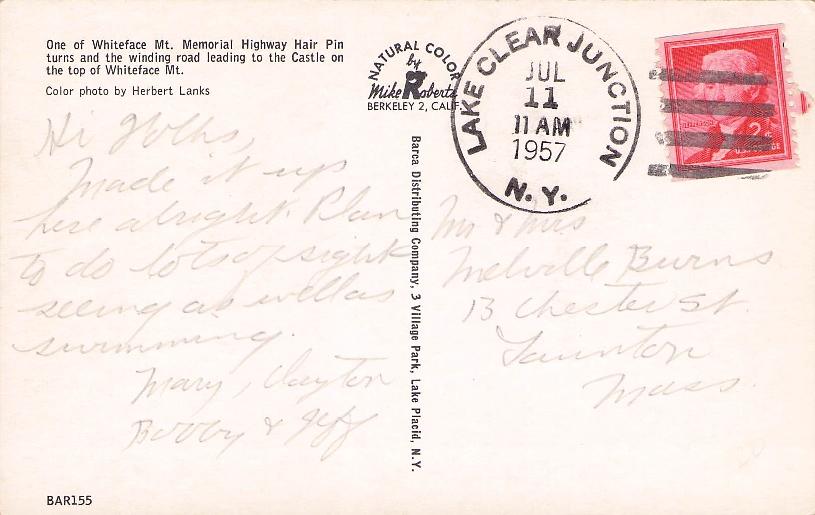 One of Whiteface Mt. Memorial Highway Hair Pin
turns and the winding road leading to the Castle on
the top of Whiteface Mt.
Color photo by Herbert Lanks
NATURAL COLOR
by
Mike Roberts
BERKELEY 2, CALIF.
LAKE CLEAR JUNCTION
JUL
11
11 AM
1957
N. Y.
2¢
Hi Folks,
Made it up
here alright. Plan
to do lots of sight
seeing as well as
swimming.
Mary, Clayton
Bobby & Jeff
Barca Distributing Company, 3 Village Park, Lake Placid, N.Y.
Mr & Mrs
Melville Burns
13 Chester St.
Taunton
Mass.
BAR155